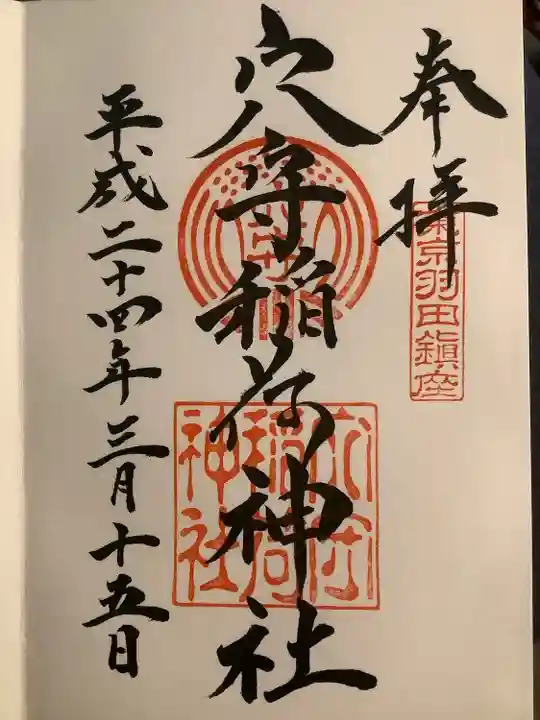 奉拝
東京羽田鎮座
穴守稲荷神社
穴守
稲荷
神社
平成二十四年三月十五日